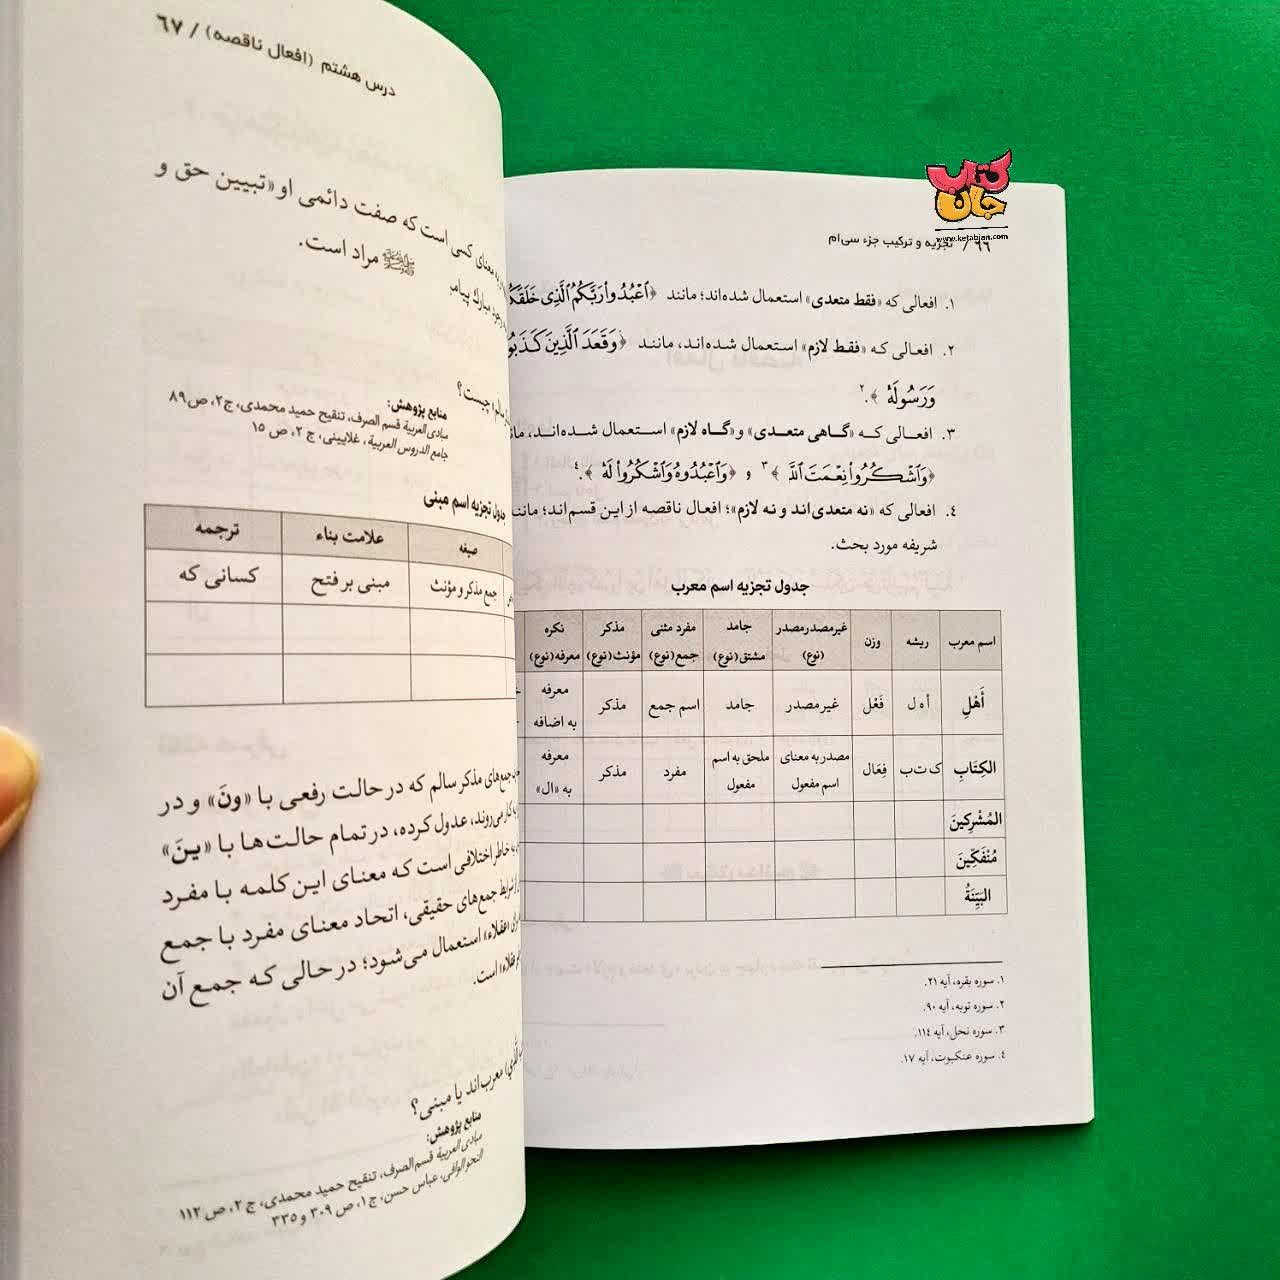 کتاب جان
www.ketabjan.com
٦٦ / تجزیه و ترکیب جزء سی‌ام
۱. افعالی که «فقط متعدی» استعمال شده‌اند؛ مانند ﴿ٱعْبُدُوا۟ رَبَّكُمُ ٱلَّذِى
۲. افعالی که «فقط لازم» استعمال شده‌اند، مانند ﴿وَقَعَدَ ٱلَّذِينَ كَذَبُو
وَرَسُولَهُۥ﴾.٢
۳. افعالی که «گاهی متعدی» و «گاه لازم» استعمال شده‌اند،
﴿وَٱشْكُرُوا۟ نِعْمَتَ ٱللَّهِ﴾٣ و ﴿وَٱعْبُدُوهُ وَٱشْكُرُوا۟ لَهُۥ﴾.٤
۴. افعالی که «نه متعدی‌اند و نه لازم»؛ افعال ناقصه از این قسم‌اند؛ مانند
شریفه مورد بحث.
جدول تجزیه اسم معرب
اسم معرب ریشه وزن غیرمصدر مصدر (نوع) جامد مشتق(نوع) مفرد مثنی جمع(نوع) مذکر مؤنث(نوع) نکره معرفه(نوع)
أَهْلِ أ ه ل فَعْل غیرمصدر جامد اسم جمع مذکر معرفه به اضافه
الکِتَابِ ک ت ب فِعَال مصدر به معنای اسم مفعول ملحق به اسم مفعول مفرد مذکر معرفه به «ال»
المُشْرِکینَ
مُنْفَکِّینَ
البَیِّنَةُ
۱. سوره بقره، آیه ۲۱.
۲. سوره توبه، آیه ۹۰.
۳. سوره نحل، آیه ۱۱۴.
۴. سوره عنکبوت، آیه ۱۷.
درس هشتم (افعال ناقصه) / ٦٧
معنای کسی است که صفت دائمی او «تبیین حق و
وجود مبارک پیامبر ﷺ مراد است.
سالم» چیست؟
منابع پژوهش:
مبادی العربیة قسم الصرف، تنقیح حمید محمدی، ج۲، ص۸۹
جامع الدروس العربیة، غلایینی، ج ۲، ص ۱۵
جدول تجزیه اسم مبنی
صیغه علامت بناء ترجمه
جمع مذکر و مؤنث مبنی بر فتح کسانی که
جمع‌های مذکر سالم که در حالت رفعی با «ونَ» و در
به کار می‌روند، عدول کرده، در تمام حالت‌ها با «ینَ»
به خاطر اختلافی است که معنای این کلمه با مفرد
شرایط جمع‌های حقیقی، اتحاد معنای مفرد با جمع
«عقلاء» استعمال می‌شود؛ در حالی که جمع آن
عقلاء» است.
معرب‌اند یا مبنی؟
منابع پژوهش:
مبادی العربیة قسم الصرف، تنقیح حمید محمدی، ج۲، ص ۱۱۲
النحو الوافی، عباس حسن، ج۱، ص ۳۰۹ و ۳۳۵